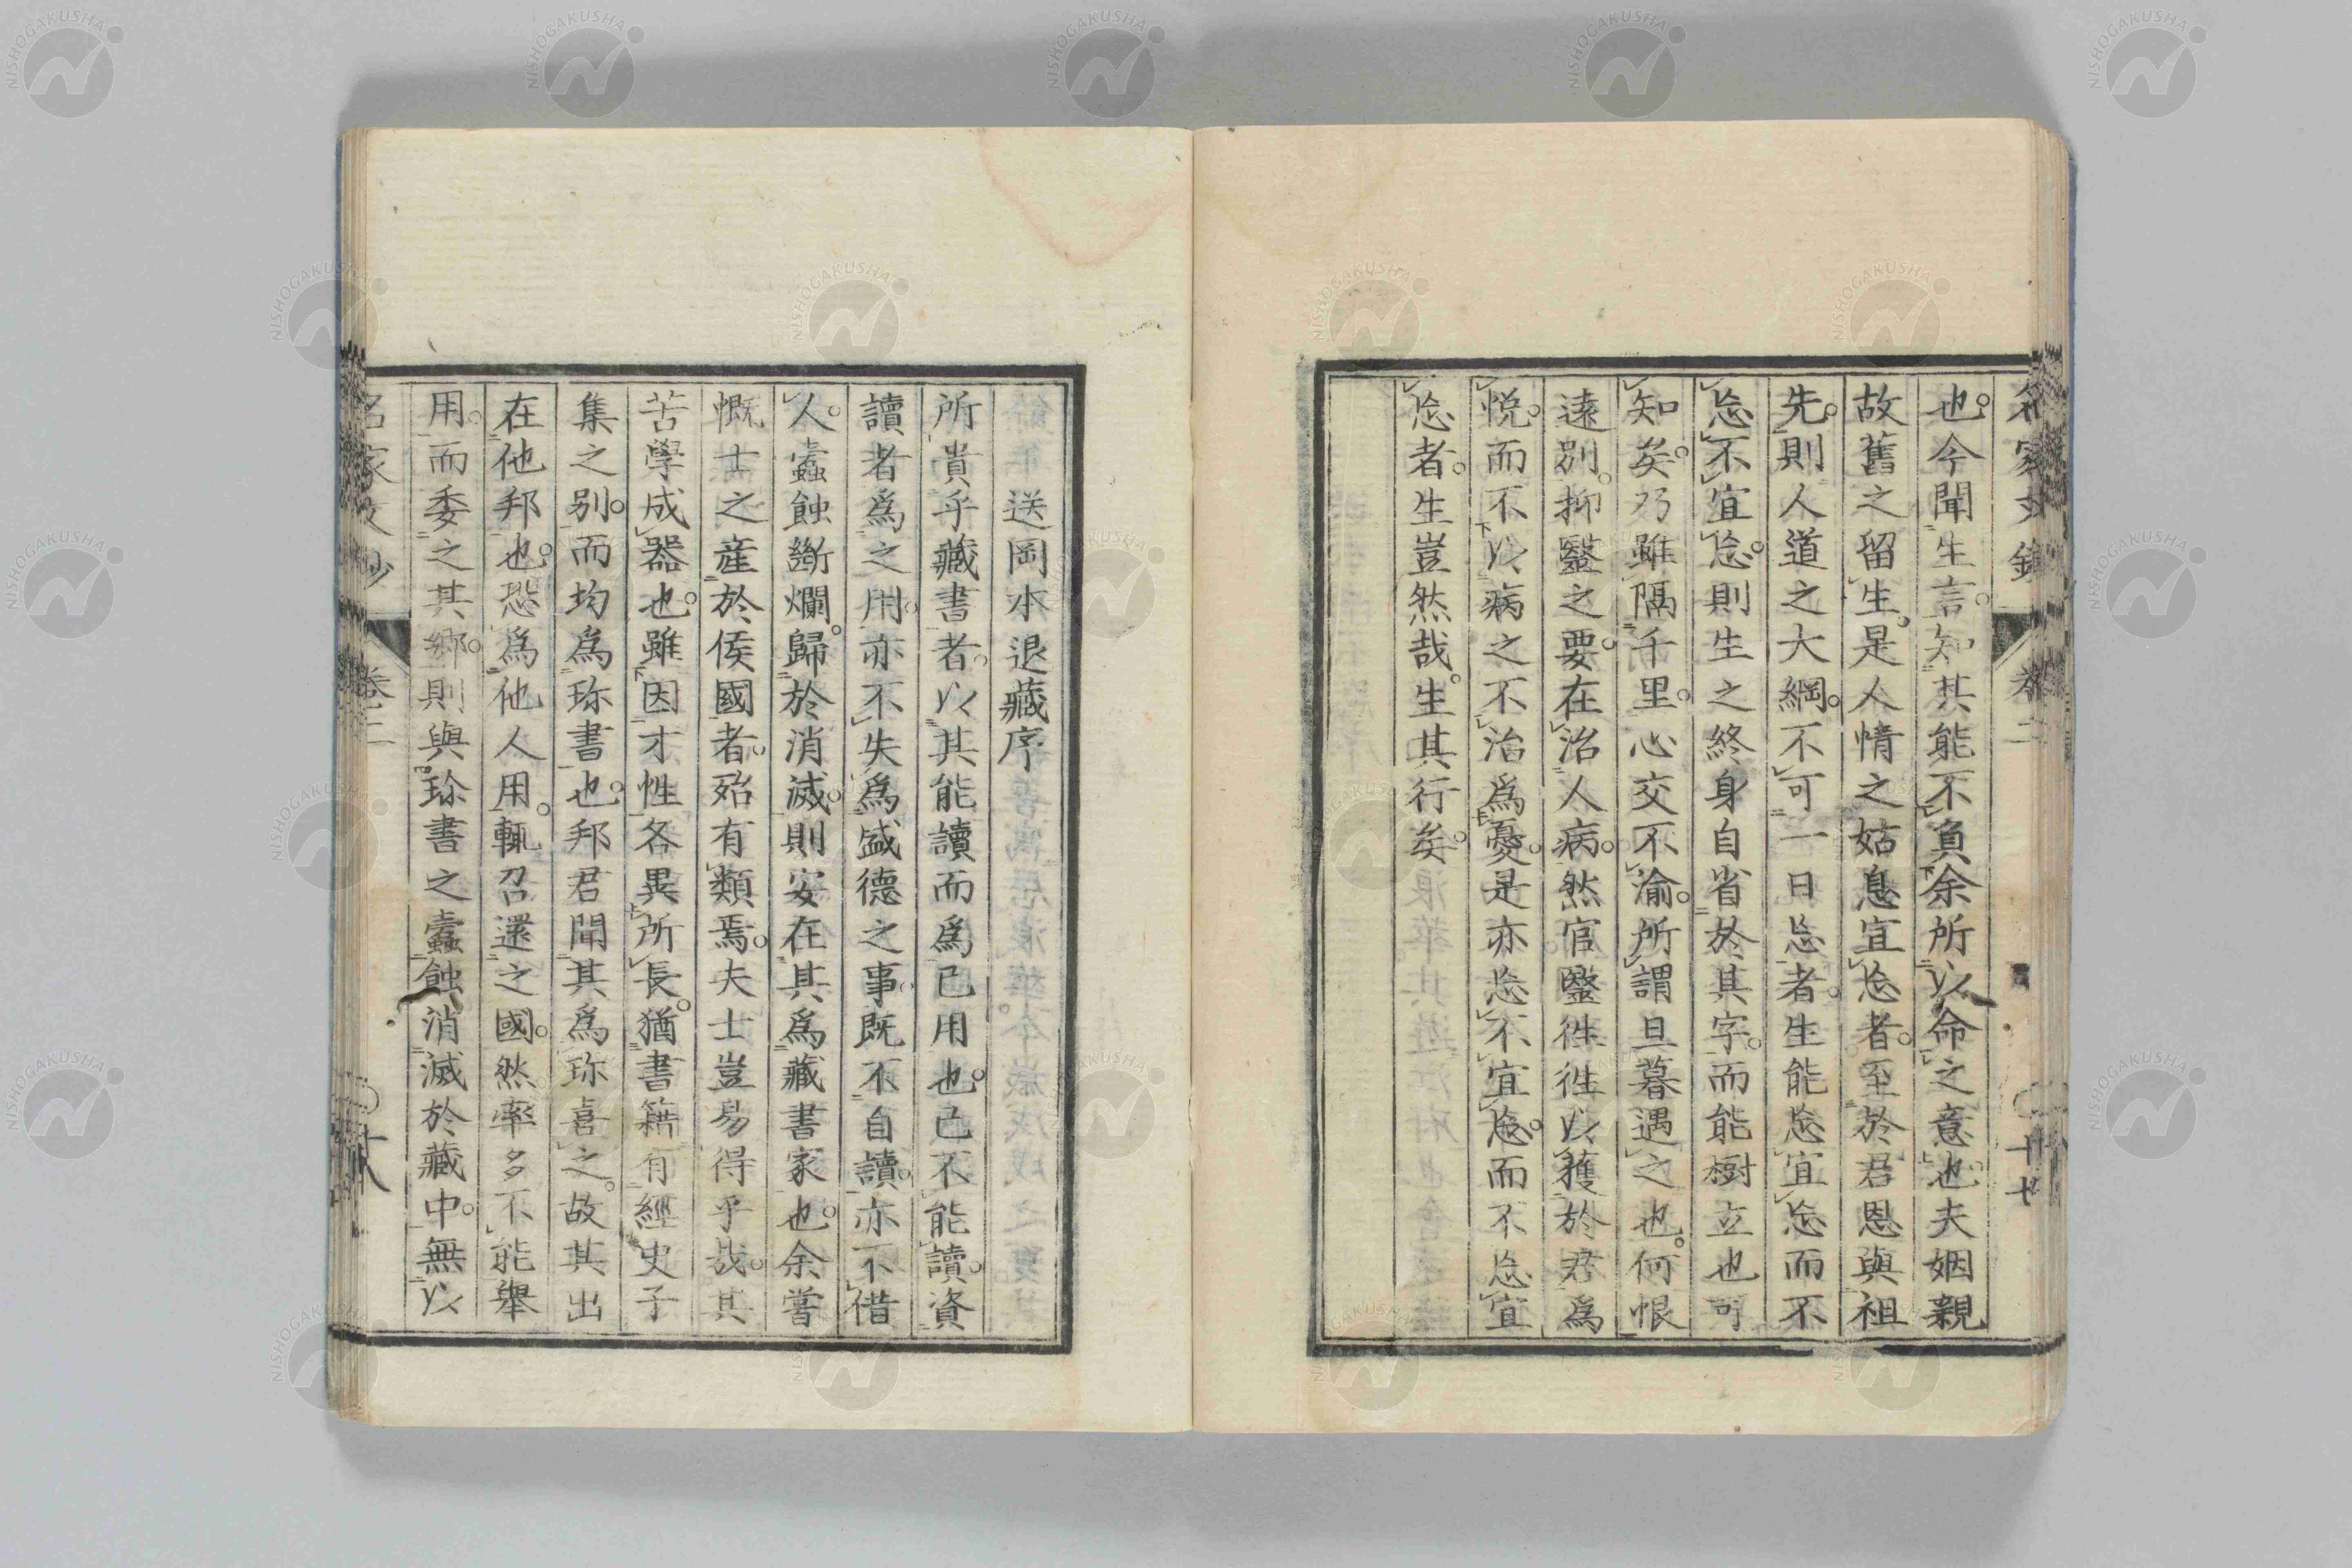 也。今聞生言。知其能不負余所以命之意也夫姻親
故舊之留生。是人情之姑息宜忘者。至於君恩與祖
先。則人道之大綱。不可一日忘者。生能忘宜忘而不
忘不宜忘。則生之終身自省於其字。而能樹立也可
知矣。乃雖隔千里。心交不渝。所謂旦暮遇之也。何恨
遠別。抑醫之要。在治人病。然官醫往往以獲於君為
悅。而不以病之不治為憂。是亦忘不宜忘。而不忘宜
忘者。生豈然哉。生其行矣。
送岡本退藏序
所貴乎藏書者。以其能讀而為已用也。已不能讀。資
讀者為之用。亦不失為盛德之事。既不自讀。亦不借
人。蠹蝕斷爛。歸於消滅。則安在其為藏書家也。余嘗
慨士之產於侯國者。殆有類焉。夫士豈易得乎哉。其
苦學成器也。雖因才性各異所長。猶書籍有經史子
集之別。而均為珎書也。邦君聞其為珎喜之。故其出
在他邦也。恐為他人用。輒召還之國。然率多不能舉
用。而委之其鄉。則與珎書之蠹蝕消滅於藏中。無以
名家文鈔
卷二